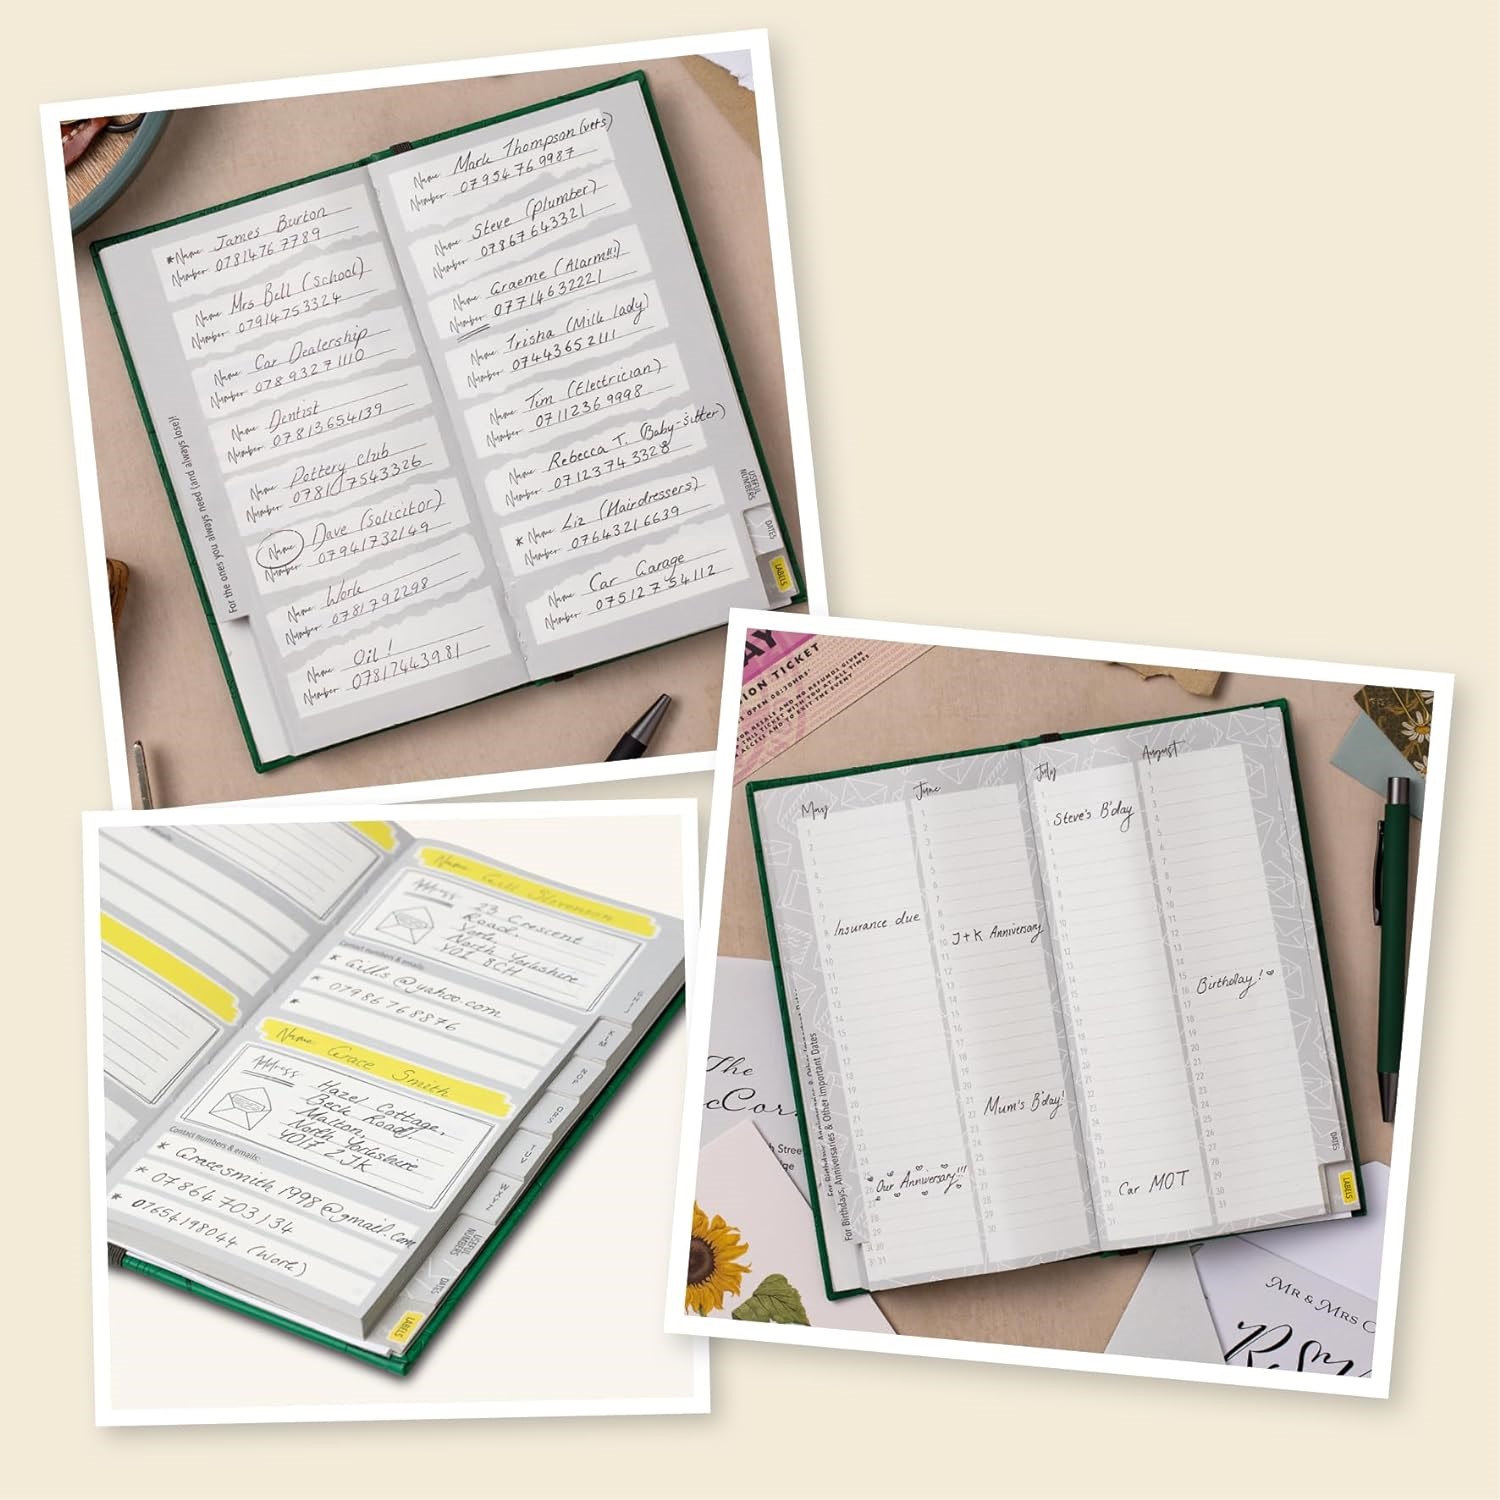 *Name James Burton
Number 07814767789
Name Mrs Bell (School)
Number 07914753324
Name Car Dealership
Number 07893271110
Name Dentist
Number 07813654139
Name Pottery club
Number 07817543326
Name Dave (Solicitor)
Number 07941732149
Name Work
Number 0781792298
Name Oil!
Number 07817443981
For the ones you always need (and always lose)!
Name Mark Thompson (vets)
Number 07954769987
Name Steve (plumber)
Number 07867643321
Name Graeme (Alarm!!!)
Number 07714632221
Name Trisha (Milk lady)
Number 07443652111
Name Tim (Electrician)
Number 07112369998
Name Rebecca T. (Baby-sitter)
Number 07123743328
*Name Liz (Hairdressers)
Number 07643216639
Name Car Garage
Number 07512754112
USEFUL
NUMBERS
DATES
LABELS
Name Gill Steventon
Address 23 Crescent
Road
York,
North Yorkshire
YO1 8CH
Contact numbers & emails:
* Gills@yahoo.com
* 07986768876
*
Name Grace Smith
Address Hazel Cottage,
Beck Road,
Malton,
North Yorkshire
YO17 2JK
Contact numbers & emails:
* Gracesmith1998@gmail.com
* 07864703134
* 07654198044 (Work)
KLM
TUV
WXYZ
USEFUL
NUMBERS
DATES
LABELS
ION TICKET
May
June
July
August
Steve's B'day
Insurance due
J+K Anniversary
Birthday!
Mum's B'day!
Our Anniversary!!!
Car MOT
For Birthdays, Anniversaries & Other Important Dates
DATES
LABELS
The
h Street
MR & MRS C